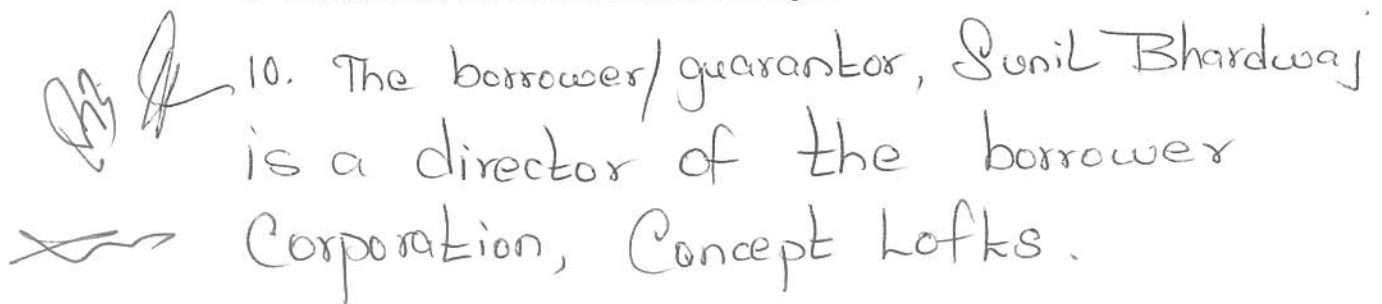 10. The borrower/guarantor, Sunil Bhardwaj
is a director of the borrower
Corporation, Concept Lofts.